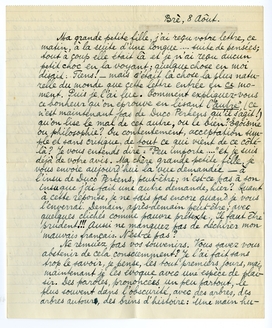 Bré, 8 Août.
Ma grande petite fille, j'ai reçu votre lettre, ce
matin, à la suite d'une longue .... suite de pensées;
tout à coup elle était là et je n'ai reçu aucun
petit choc en la voyant; quelque chose en moi
disait: Tiens! — mais c'était la chose la plus natu-
relle du monde que cette lettre entrée en ce mo-
ment. Puis je l'ai lue. Comment expliquez-vous
ce bonheur qu'on éprouve en lisant l'autre! (ce
n'est maintenant pas de Duco Perkens qu'il s'agit!)
qu'on lise le mal de cet autre, ou le bien?
ou philosophie? Ou contentement, acceptation sim-
ple et sans critique, de tout ce qui vient de ce côté-
là? Je vous entends dire: Peu importe — et je suis
déjà de votre avis. Ma chère grande petite fille, je
vous envoie aujourd'hui la vue demandée — à
l'insu de Duco Perkens, peut-être; n'est-ce pas à son
insu que j'ai fait une autre demande, hier? Quant
à cette réponse, je ne sais pas encore quand je vous
l'enverrai. Demain, après-demain peut-être; avec
quelques clichés comme pauvre prétexte. Il faut être
prudent!!! Aussi ne manquez pas de déchirer mon
mauvais français. N'est-ce pas?
Ne remuez pas vos souvenirs. Vous savez vous
abstenir de cela consciemment? Je l'ai fait sans
trop le savoir, je pense, les tout premiers jours, mais
maintenant je les évoque avec une espèce de plai-
sir. Des paroles, prononcées un peu partout, le
plus souvent dans l'obscurité, avec des arbres, des
arbres autour, des biens d'histoire: une main